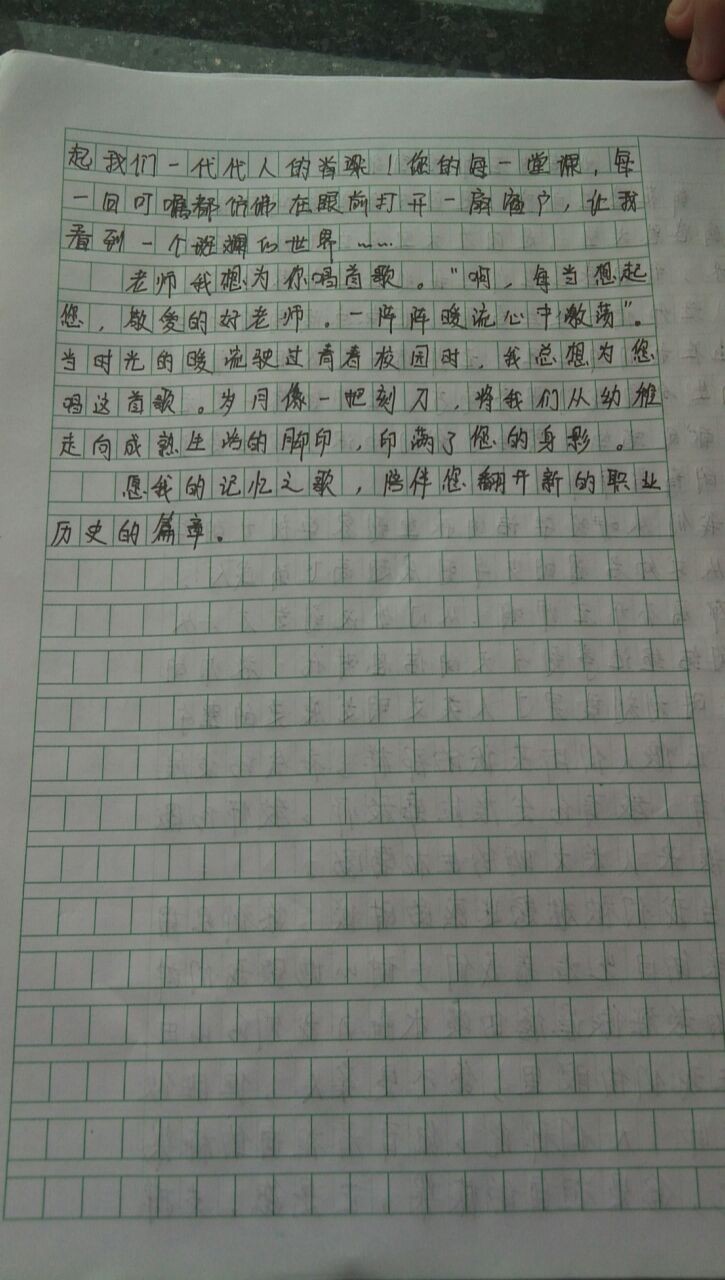 起我们一代代人的脊梁！您的每一堂课，每
一回叮嘱都仿佛在眼前打开一扇窗户，让我
看到一个斑斓的世界……
老师我想为你唱首歌。“啊，每当想起
您，敬爱的好老师。一阵阵暖流心中激荡”。
当时光的暖流驶过青春校园时，我总想为您
唱这首歌。岁月像一把刻刀，将我们从幼稚
走向成熟生涯的脚印，印满了您的身影。
愿我的记忆之歌，陪伴您翻开新的职业
历史的篇章。